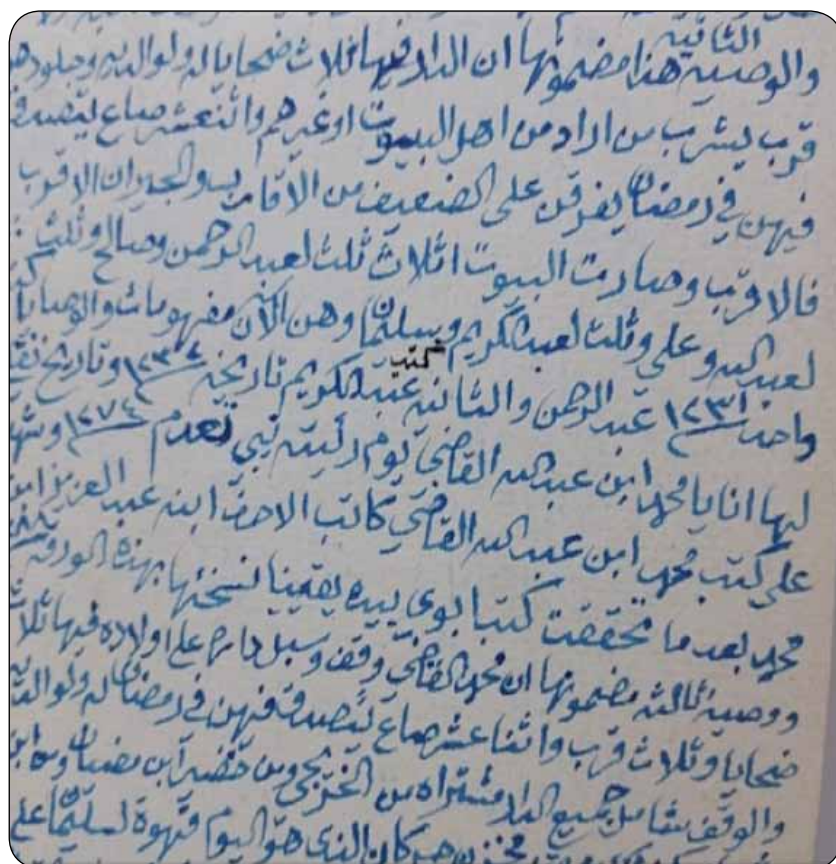 والوصية الثانية هذا مضمونها ان الدار فيها ثلاث ضحايا له ولوالديه وجلودهن
قرب يشرب من اراد من اهل البيوت او غيرهم واثنعشر صاع يتصدق
فيهن في رمضان يفرقن على الضعيف من الاقارب والجيران الاقرب
فالاقرب وصارت البيوت اثلاث ثلث لعبدالرحمن وصالح وثلث
لعبدالله وعلي وثلث لعبدالكريم وسليمان وهن الآن مفهومات والوصايا
واحد ١٢٣١ عبدالرحمن والثانيه كتب عبدالكريم تاريخه وتاريخ
لها انايا محمد ابن عبدالله القاضي يوم رئيته تبي تعدم ١٢٧٤
على كتب محمد ابن عبدالله القاضي كاتب الاحرف ابنه عبدالعزيز ابن
محمد بعد ما تحققت كتب ابوي بيده يقينا نسختها بهذه الورقه
ووصية ثالثه مضمونها ان محمد القاضي وقف وسبل داره على اولاده فيها ثلاث
ضحايا وثلاث قرب واثنا عشر صاع يتصدق فيهن في رمضان له ولوالديه
والوقف شامل جميع الدار مشتراه من الخريجي ومن خضير ابن
كان الذي هو اليوم قهوة لسليمان على